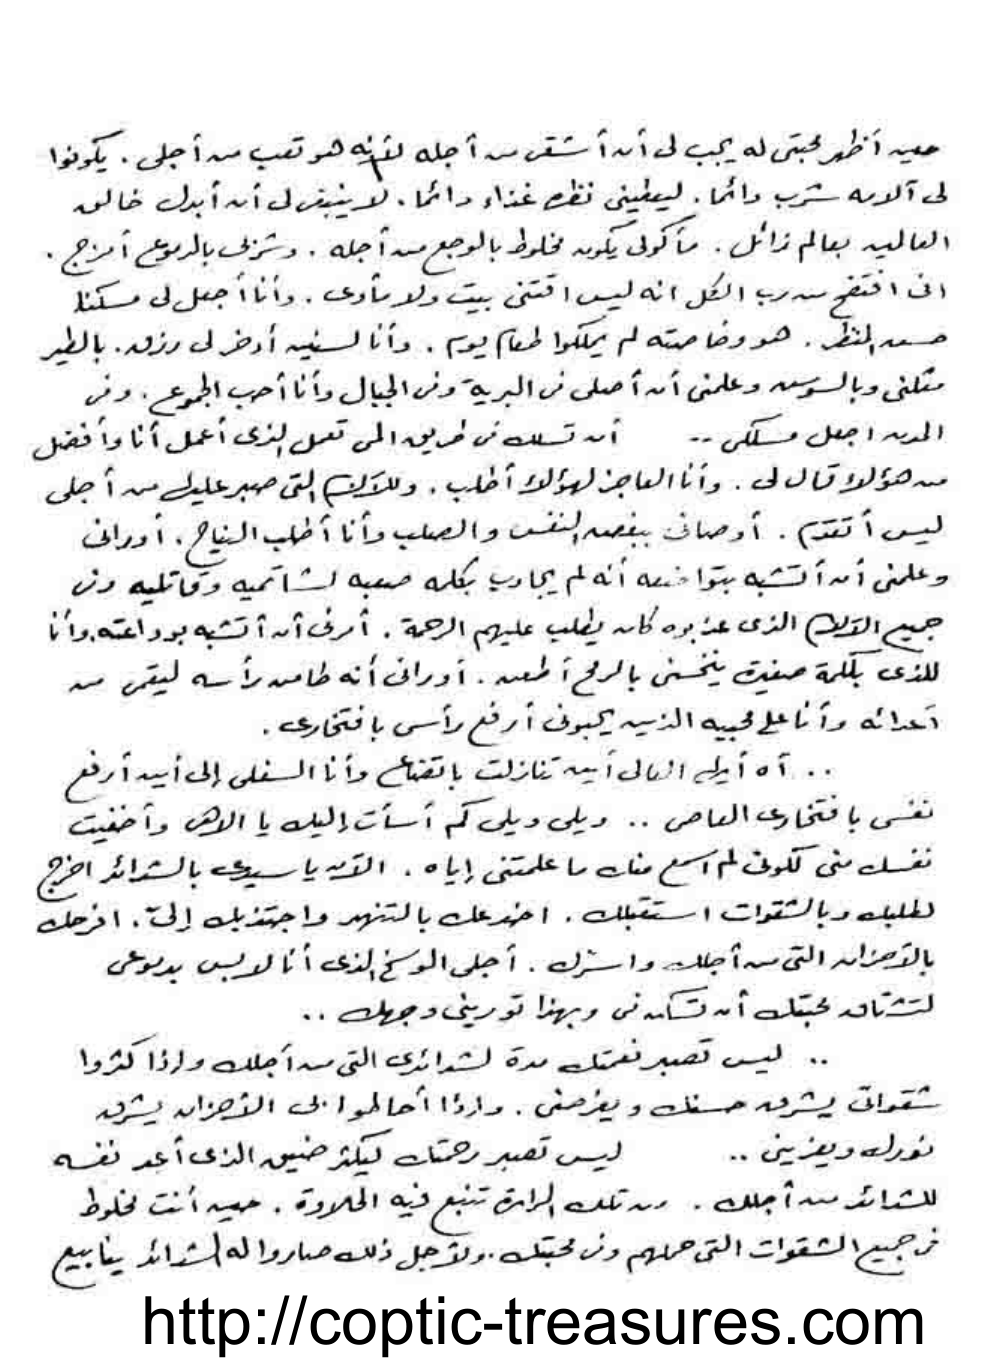 حين أظهر محبتى له يجب لى أن أشقى من أجله لأنه هو تعب من أجلى . يكونوا
لى آلامه شرب دائما . ليعطينى نظره غذاء دائما . لا ينبغى لى أن أبدل خالق
العالمين بعالم زائل . مأكولى يكون مخلوط بالوجع من أجله . وشربى بالدموع أمزج .
انى افتضح من رب الكل انه ليس اقتنى بيت ولا مأوى . وأنا أجعل لى مسكنا
حسن المنظر . هو وخاصته لم يملكوا طعام يوم . وأنا لسنين أدخر لى رزق . بالطير
مثلنى وبالسوسن وعلمنى أن أصلى فى البرية وفى الجبال وأنا أحب الجموع . وفى
المدن اجعل مسكنى .. أن تسلك فى طريق الى تعمل الذى أعمل أنا وأفضل
من هؤلاء قال لى . وأنا العاجز لهؤلاء أطلب . وللآلام التى صبر عليها من أجلى
ليس أتقدم . أوصانى ببغض النفس والصلب وأنا أطلب النياح . أورانى
وعلمنى أن أتشبه بتواضعه أنه لم يجاوب بكلمه صعبه لشاتميه وقاتليه وفى
جميع الآلام الذى عذبوه كان يطلب عليهم الرحمة . أمرنى أن أتشبه بوداعته وأنا
للذى بكلمة صغيرة ينخسنى بالرمح أطعن . أورانى أنه طامن رأسه ليقمى من
أعدائه وأنا على محبيه الذين يحبونى أرفع رأسى بافتخارى .
.. آه أيها العالى أين تنازلت باتضاع وأنا السفلى إلى أين أرفع
نفسى بافتخارى العاصى .. ويلى ويلى كم أسأت إليك يا الاهى وأخفيت
نفسك منى لكونى لم اسمع منك ما علمتنى إياه . الآن يا سيدى بالشدائد اخرج
لطلبك وبالشقوات استقبلك . اخدعك بالتنهد واجتذبك إلىّ . افرحك
بالأحزان التى من أجلك واسرك . أجلى الوسخ الذى أنا لابس بدموعى
لتشتاق محبتك أن تسكن فى وبهذا تورينى وجهك ..
.. ليس تصبر نعمتك مدة لشدائدى التى من أجلك وإذا كثروا
شقواتى يشرق حسنك ويفرحنى . وإذا أحاطوا بى الأحزان يشرق
نورك ويعزينى .. ليس تصبر رحمتك ليكثر ضيق الذى أعد نفسه
للشدائد من أجلك . من تلك المرارة تنبع فيه الحلاوة . حين أنت مخلوط
فى جميع الشقوات التى حملهم وفى محبتك . ولأجل ذلك صاروا له الشدائد ينابيع
http://coptic-treasures.com